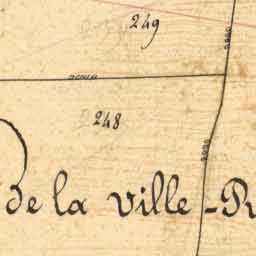 249
248
de la ville-R